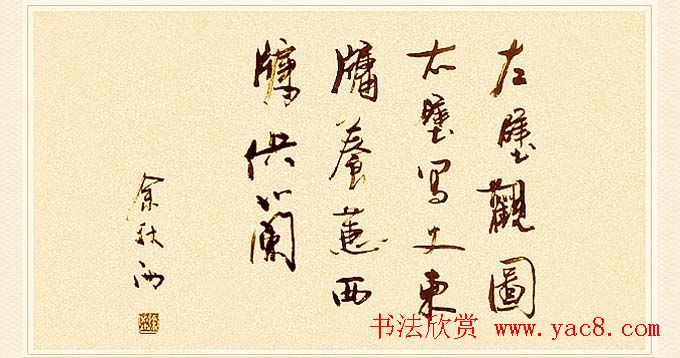 左壁觀圖
右壁寫文東
牖養蕙西
牖供蘭
余秋雨
书法欣赏 www.yac8.com